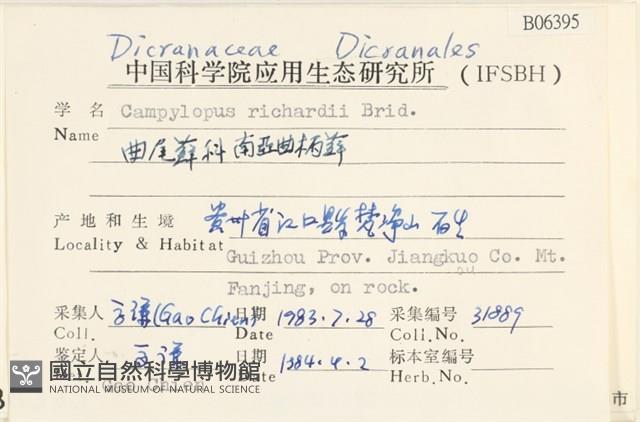 B06395
Dicranaceae Dicranales
中国科学院应用生态研究所 (IFSBH)
学名 Campylopus richardii Brid.
Name
曲尾藓科 南亚曲柄藓
产地和生境 贵州省江口县梵净山 石生
Locality & Habitat
Guizhou Prov. Jiangkuo Co. Mt.
Fanjing, on rock.
采集人 高谦(Gao Chien) 日期 1983.7.28 采集编号 31889
Coll. Date Coll.No.
鉴定人 高谦 日期 1984.4.2 标本室编号
Date Herb.No.
國立自然科學博物館
NATIONAL MUSEUM OF NATURAL SCIENCE
市